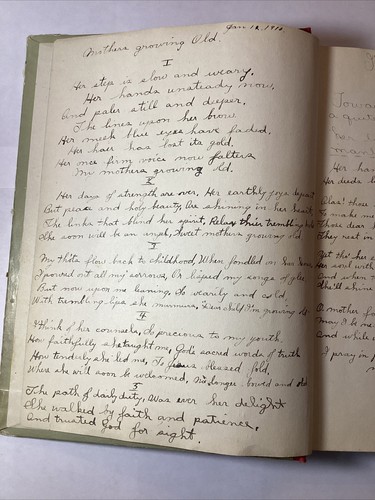 Jan 12, 1910
Mothers growing Old.
I
Her step is slow and weary,
Her hands unsteady now,
And paler still and deeper,
The lines upon her brow
Her meek blue eyes have faded,
Her hair has lost its gold,
Her once firm voice now falters
My mothers growing old.
2
Her days of strength are over, Her earthly joys depart
But peace and holy beauty, Are shining in her heart
The links that bind her spirit, Relax their trembling hold
She soon will be an angel, Sweet mothers growing old.
3
My thots flow back to childhood, When fondled on
I poured out all my sorrows, Or lisped my songs of glee
But now upon me leaning, So wearily and cold,
With trembling lips she murmurs, "Dear child I'm growing old
4
I think of her counsels, So precious to my youth
How faithfully she taught me, God's sacred words of truth
How tenderly she led me, To Jesus blessed fold,
Where she will soon be welcomed, No longer bowed and old
5
The path of daily duty, Was ever her delight
She walked by faith and patience,
And trusted God for sight.
Towa
a quiet
Her ha
Her deeds
Alas! those
To make me
Those dear
They rest in
Yet tho' her
Her soul with
And when
She'll shine
O mother
May I be
And while
I pray in